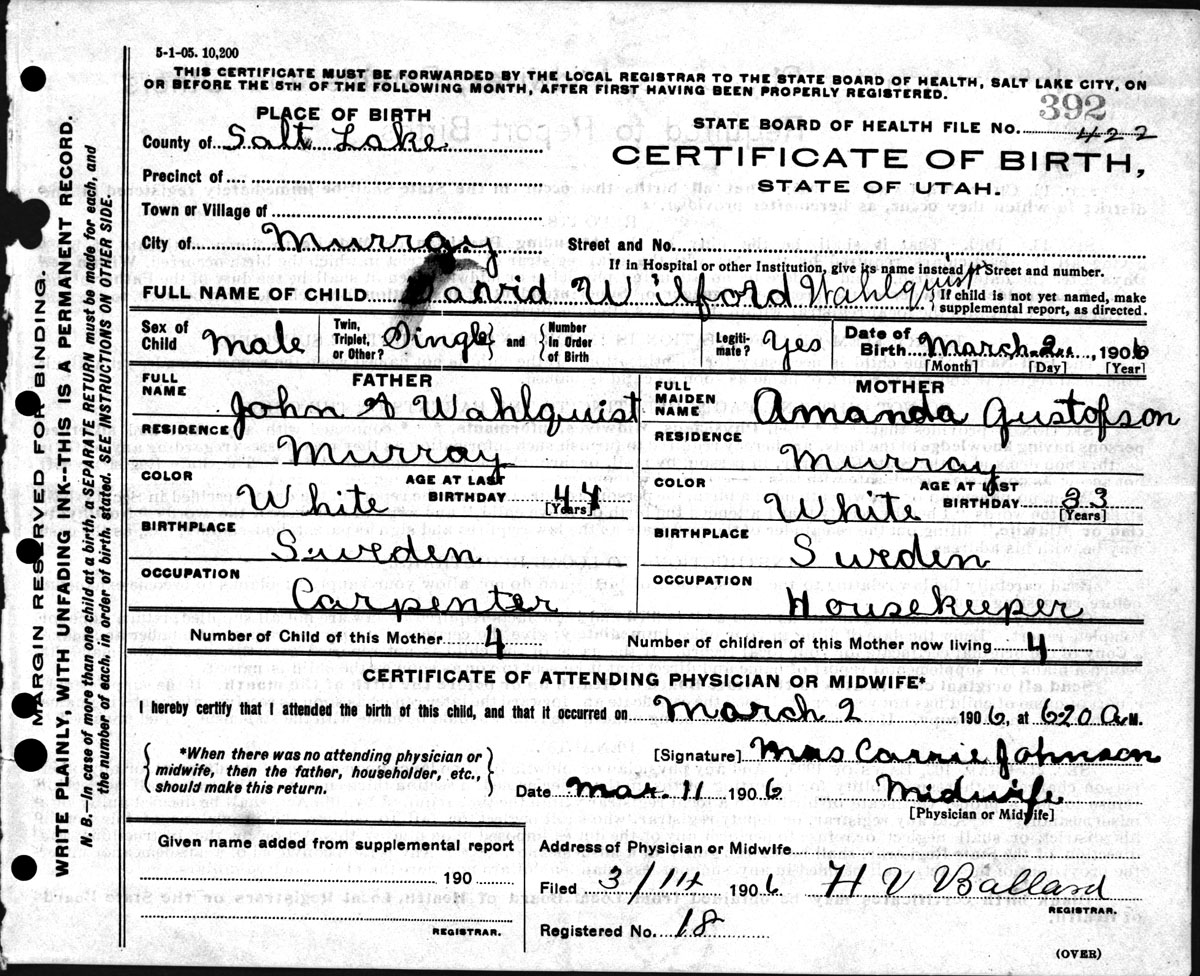 5-1-05. 10,200
THIS CERTIFICATE MUST BE FORWARDED BY THE LOCAL REGISTRAR TO THE STATE BOARD OF HEALTH, SALT LAKE CITY, ON
OR BEFORE THE 5TH OF THE FOLLOWING MONTH, AFTER FIRST HAVING BEEN PROPERLY REGISTERED.
392
PLACE OF BIRTH
STATE BOARD OF HEALTH FILE NO. 422
County of Salt Lake
CERTIFICATE OF BIRTH,
STATE OF UTAH.
Precinct of
Town or Village of
City of Murray Street and No.
If in Hospital or other Institution, give its name instead of Street and number.
FULL NAME OF CHILD David Wilford Wahlquist { If child is not yet named, make supplemental report, as directed.
Sex of Child Male Twin, Triplet, or Other? Single } and { Number In Order of Birth Legiti- mate? Yes Date of Birth March 2, 1906
[Month] [Day] [Year]
FATHER
FULL NAME John A Wahlquist
RESIDENCE Murray
COLOR White AGE AT LAST BIRTHDAY 44 [Years]
BIRTHPLACE Sweden
OCCUPATION Carpenter
MOTHER
FULL MAIDEN NAME Amanda Gustofson
RESIDENCE Murray
COLOR White AGE AT LAST BIRTHDAY 33 [Years]
BIRTHPLACE Sweden
OCCUPATION Housekeeper
Number of Child of this Mother 4 Number of children of this Mother now living 4
CERTIFICATE OF ATTENDING PHYSICIAN OR MIDWIFE*
I hereby certify that I attended the birth of this child, and that it occurred on March 2 1906, at 620 A.M.
{ *When there was no attending physician or midwife, then the father, householder, etc., should make this return. }
[Signature] Mrs Carrie Johnson
Date Mar. 11 1906 Midwife
[Physician or Midwife]
Given name added from supplemental report
190
REGISTRAR.
Address of Physician or Midwife
Filed 3/14 1906 H V Ballard
REGISTRAR.
Registered No. 18
(OVER)
MARGIN RESERVED FOR BINDING.
WRITE PLAINLY, WITH UNFADING INK--THIS IS A PERMANENT RECORD.
N. B.--In case of more than one child at a birth, a SEPARATE RETURN must be made for each, and
the number of each, in order of birth, stated. SEE INSTRUCTIONS ON OTHER SIDE.